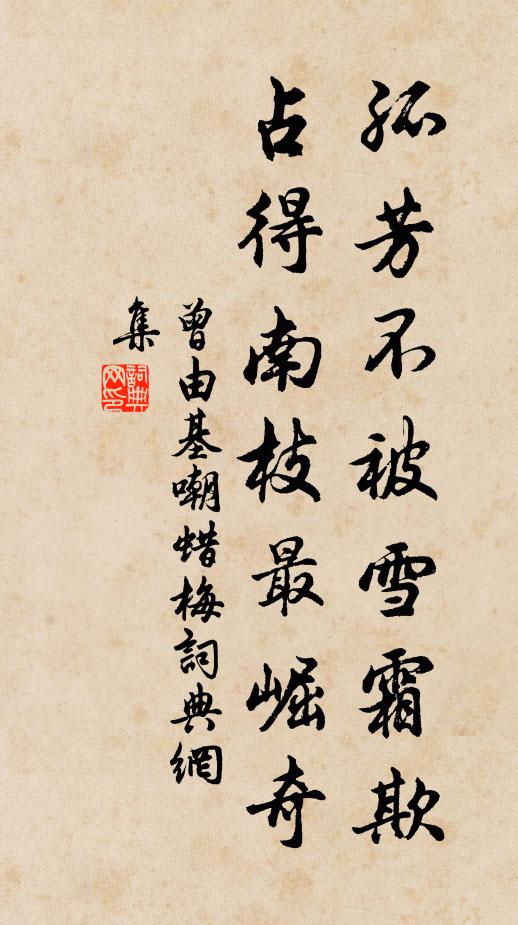 孤芳不被雪霜欺
占得南枝最崛奇
曾由基嘲蜡梅詞典網
集
詞典
网印